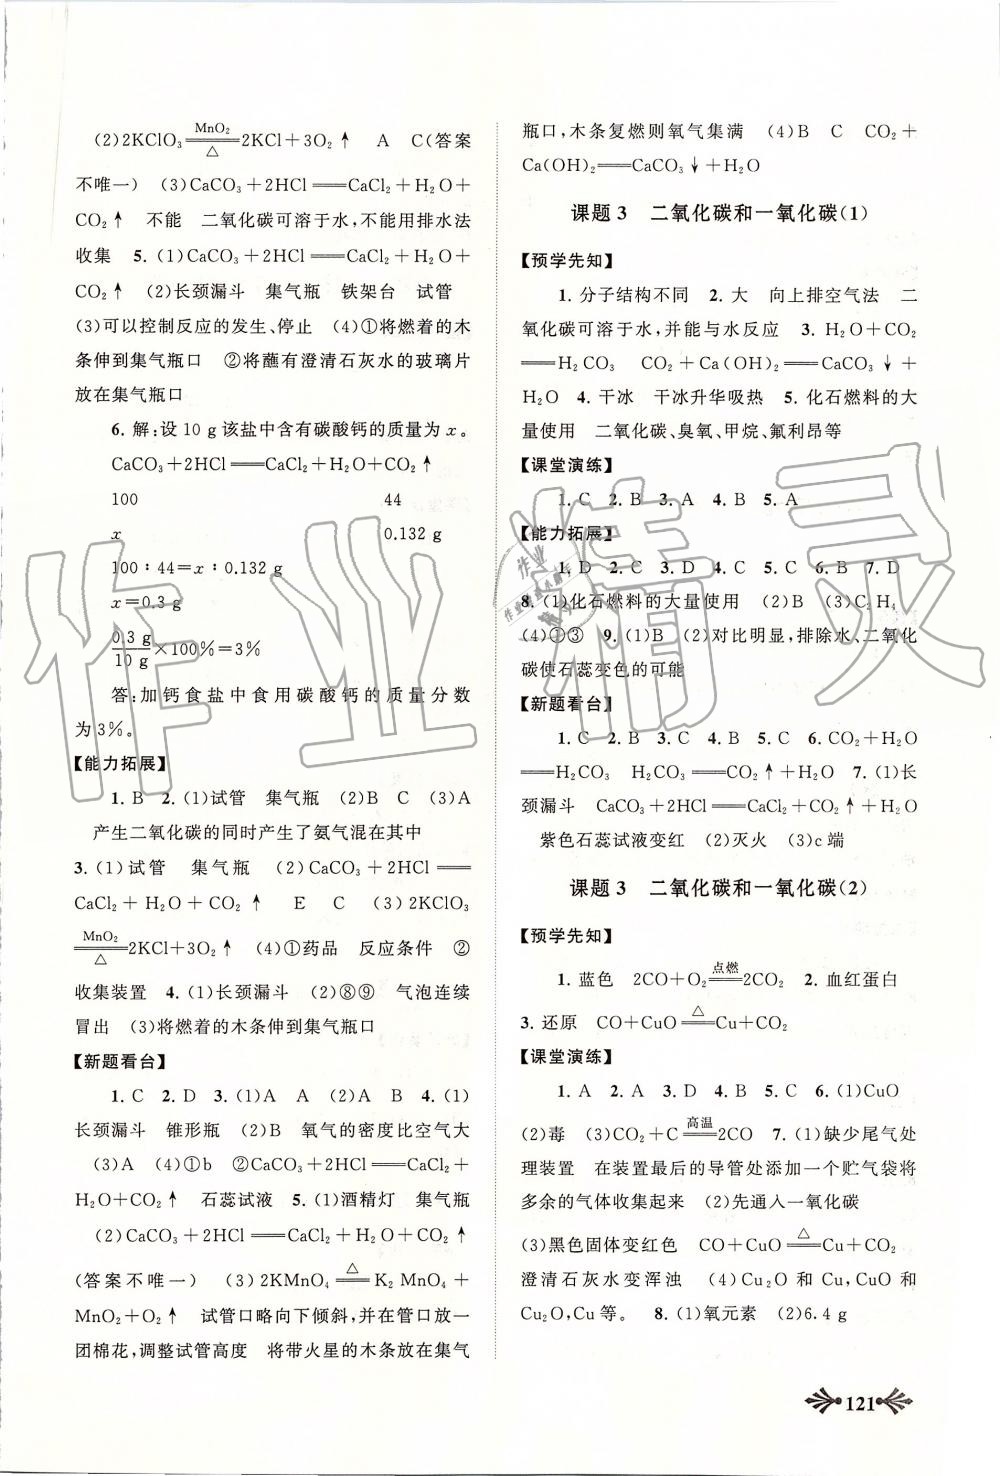 (2)2KClO₃ ══ 2KCl+3O₂↑　A　C(答案
MnO₂
△
不唯一)　(3)CaCO₃+2HCl══CaCl₂+H₂O+
CO₂↑　不能　二氧化碳可溶于水,不能用排水法
收集　5. (1)CaCO₃+2HCl══CaCl₂+H₂O+
CO₂↑　(2)长颈漏斗　集气瓶　铁架台　试管
(3)可以控制反应的发生、停止　(4)①将燃着的木
条伸到集气瓶口　②将蘸有澄清石灰水的玻璃片
放在集气瓶口
6. 解:设10 g该盐中含有碳酸钙的质量为x。
CaCO₃+2HCl══CaCl₂+H₂O+CO₂↑
100　44
x　0.132 g
100∶44=x∶0.132 g
x=0.3 g
0.3 g/10 g×100%=3%
答:加钙食盐中食用碳酸钙的质量分数
为3%。
【能力拓展】
1. B　2. (1)试管　集气瓶　(2)B　C　(3)A
产生二氧化碳的同时产生了氨气混在其中
3. (1)试管　集气瓶　(2)CaCO₃+2HCl══
CaCl₂+H₂O+CO₂↑　E　C　(3)2KClO₃
MnO₂
══2KCl+3O₂↑　(4)①药品　反应条件　②
△
收集装置　4. (1)长颈漏斗　(2)⑧⑨　气泡连续
冒出　(3)将燃着的木条伸到集气瓶口
【新题看台】
1. C　2. D　3. (1)A　A　(2)A　B　4. (1)
长颈漏斗　锥形瓶　(2)B　氧气的密度比空气大
(3)A　(4)①b　②CaCO₃+2HCl══CaCl₂+
H₂O+CO₂↑　石蕊试液　5. (1)酒精灯　集气瓶
(2)CaCO₃+2HCl══CaCl₂+H₂O+CO₂↑
(答案不唯一)　(3)2KMnO₄ ══△ K₂MnO₄+
MnO₂+O₂↑　试管口略向下倾斜,并在管口放一
团棉花,调整试管高度　将带火星的木条放在集气
瓶口,木条复燃则氧气集满　(4)B　C　CO₂+
Ca(OH)₂══CaCO₃↓+H₂O
课题3　二氧化碳和一氧化碳(1)
【预学先知】
1. 分子结构不同　2. 大　向上排空气法　二
氧化碳可溶于水,并能与水反应　3. H₂O+CO₂
══H₂CO₃　CO₂+Ca(OH)₂══CaCO₃↓+
H₂O　4. 干冰　干冰升华吸热　5. 化石燃料的大
量使用　二氧化碳、臭氧、甲烷、氟利昂等
【课堂演练】
1. C　2. B　3. A　4. B　5. A
【能力拓展】
1. D　2. C　3. D　4. C　5. C　6. B　7. D
8. (1)化石燃料的大量使用　(2)B　(3)C、H
(4)①③　9. (1)B　(2)对比明显,排除水、二氧化
碳使石蕊变色的可能
【新题看台】
1. C　2. B　3. C　4. B　5. C　6. CO₂+H₂O
══H₂CO₃　H₂CO₃══CO₂↑+H₂O　7. (1)长
颈漏斗　CaCO₃+2HCl══CaCl₂+CO₂↑+H₂O
紫色石蕊试液变红　(2)灭火　(3)c端
课题3　二氧化碳和一氧化碳(2)
【预学先知】
1. 蓝色　2CO+O₂ ══点燃 2CO₂　2. 血红蛋白
3. 还原　CO+CuO ══△ Cu+CO₂
【课堂演练】
1. A　2. A　3. D　4. B　5. C　6. (1)CuO
(2)毒　(3)CO₂+C ══高温 2CO　7. (1)缺少尾气处
理装置　在装置最后的导管处添加一个贮气袋将
多余的气体收集起来　(2)先通入一氧化碳
(3)黑色固体变红色　CO+CuO ══△ Cu+CO₂
澄清石灰水变浑浊　(4)Cu₂O和Cu,CuO和
Cu₂O,Cu等。　8. (1)氧元素　(2)6.4 g
121
作业精灵